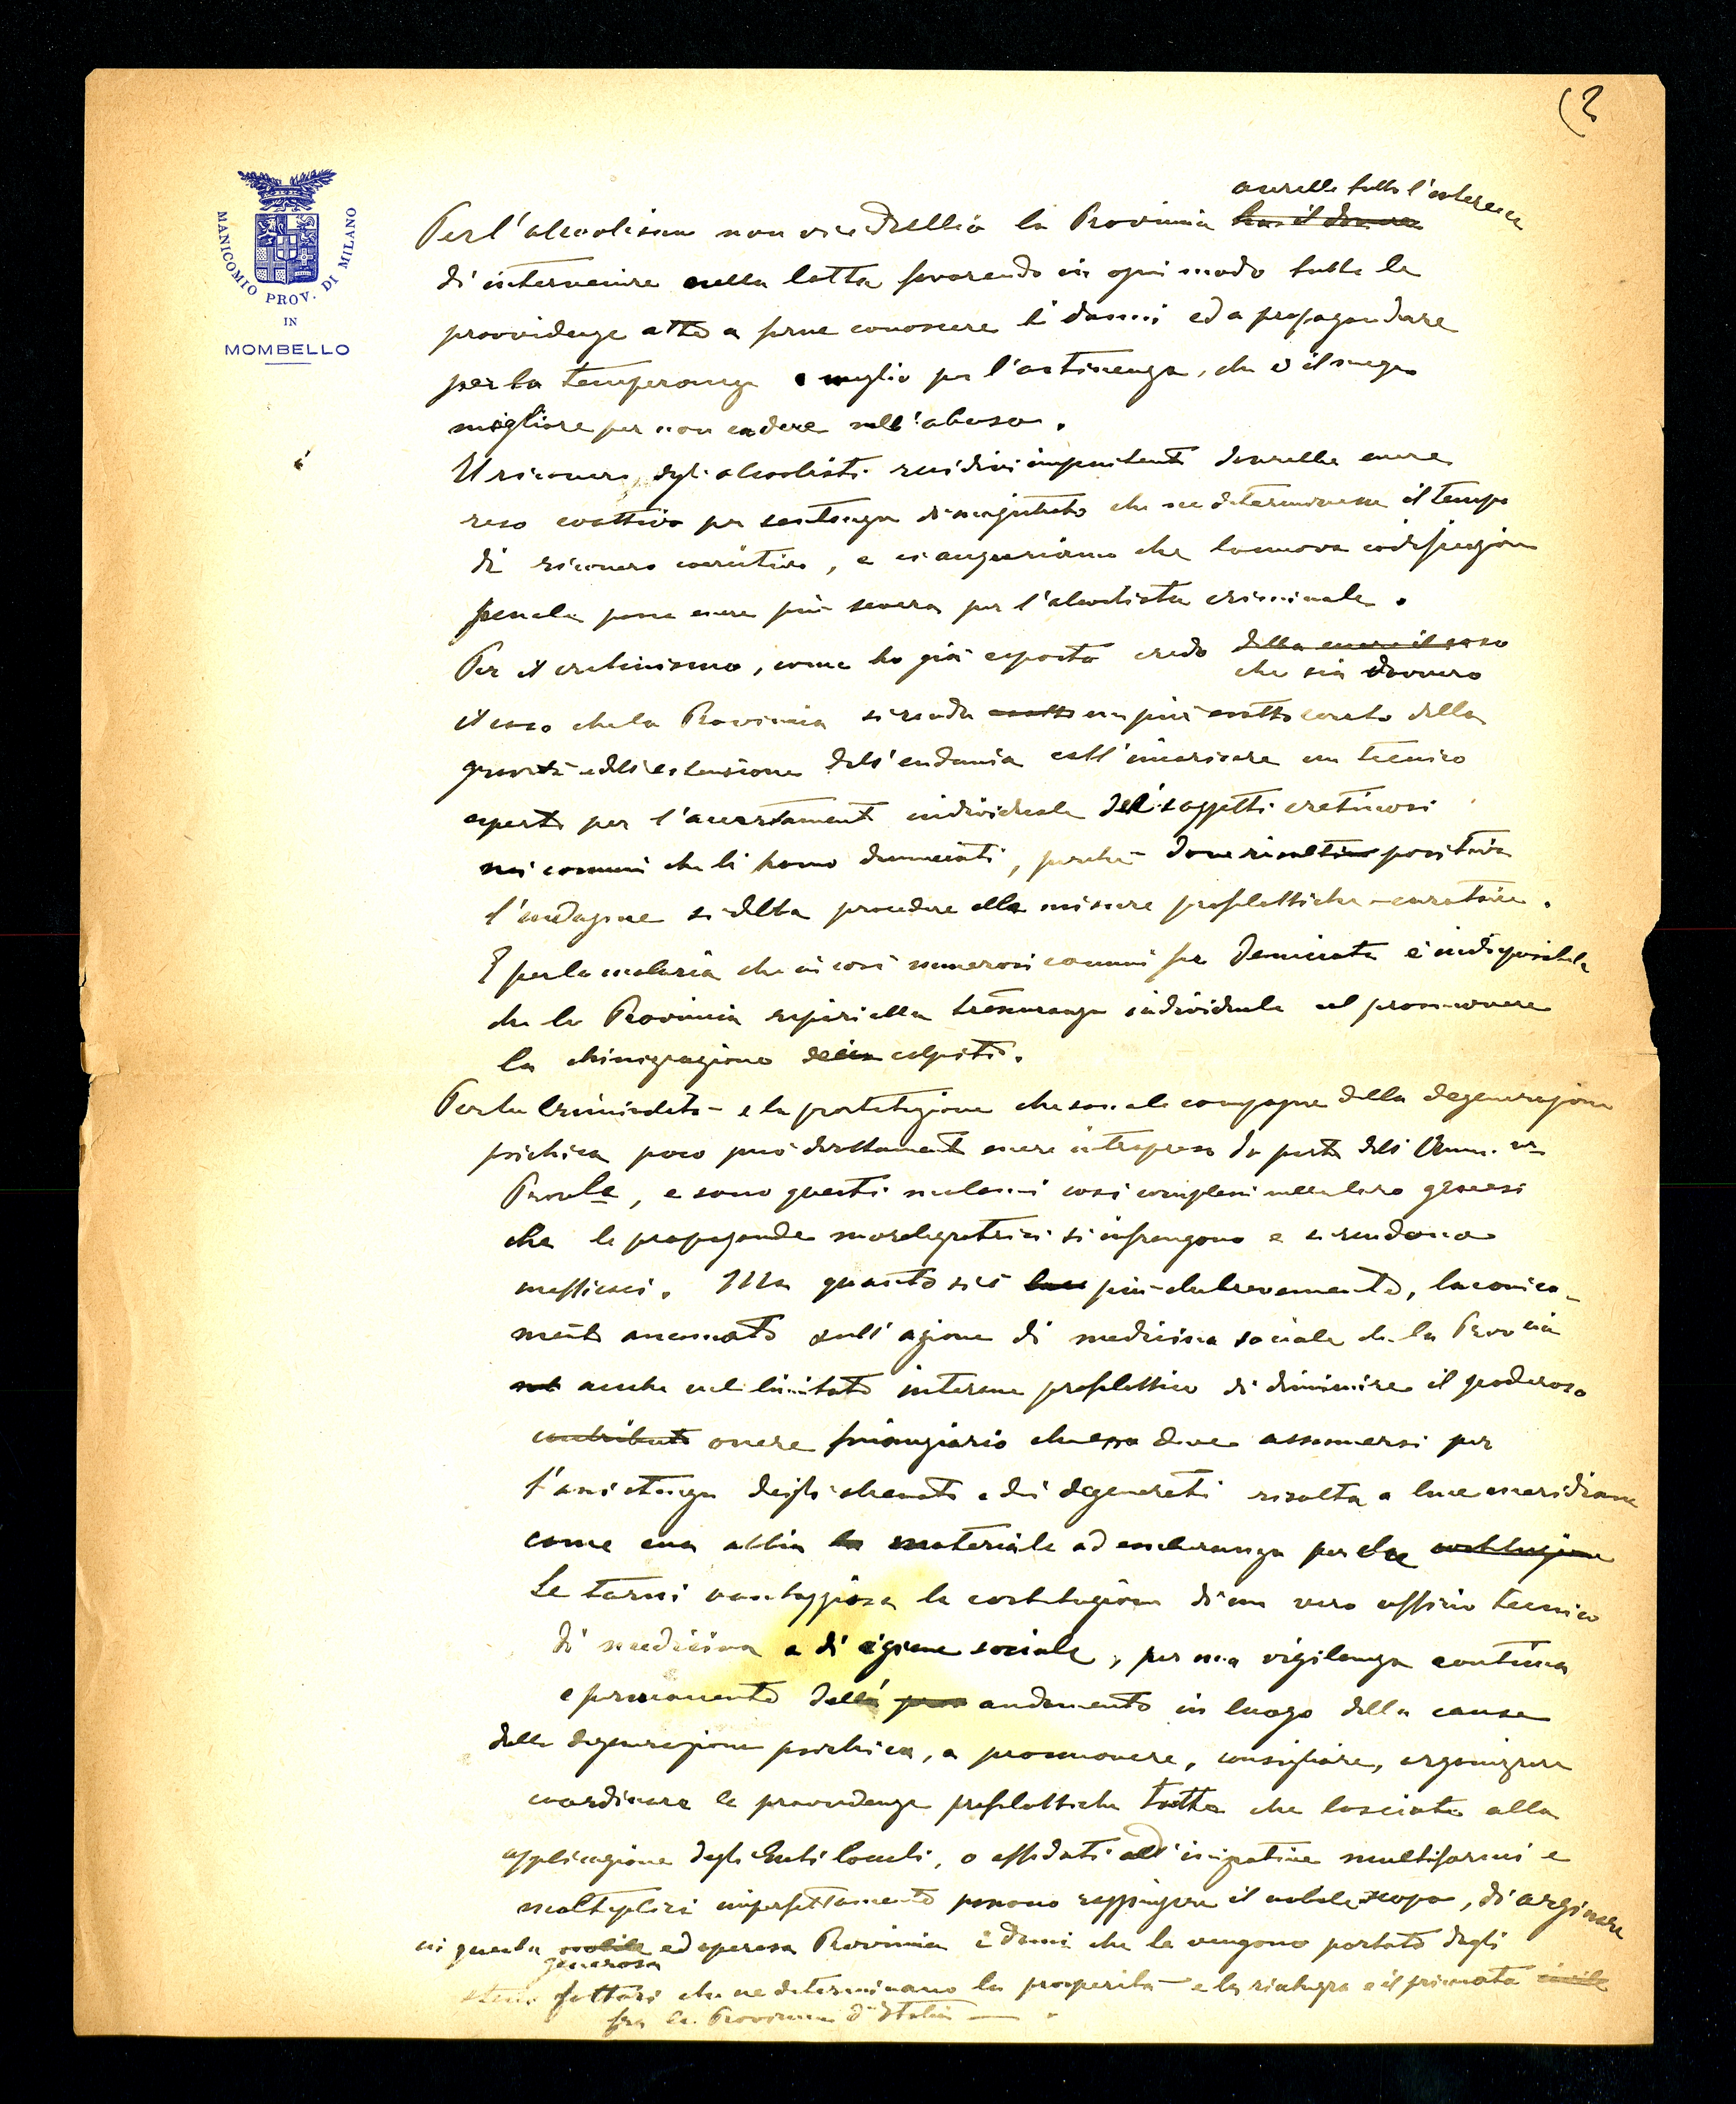 (2
MANICOMIO PROV. DI MILANO
IN
MOMBELLO
avrebbe tutto l'interesse
Per l'alcoolismo non vi è dubbio la Provincia ha il dovere
di intervenire nella lotta favorendo in ogni modo tutte le
provvidenze atte a farne conoscere i danni ed a propagandare
per la temperanza o meglio per l'astinenza, che è il mezzo
migliore per non cadere nell'abuso.
Il ricovero degli alcoolisti recidivi impenitenti dovrebbe essere
reso coattivo per sentenza di magistrato che ne determinasse il tempo
di ricovero coercitivo, e ci auguriamo che la nuova codificazione
penale possa essere più severa per l'alcoolista criminale.
Per il cretinismo, come ho già esposto credo debba essere il caso
che sia davvero
il caso che la Provincia si renda esatto un più esatto conto della
gravità e dell'estensione dell'endemia coll'incaricare un tecnico
esperto per l'accertamento individuale dei soggetti cretinosi
nei comuni che li hanno denunciati, perchè dove risultino positiva
l'indagine si debba procedere alle misure profilattiche-curative.
E per la malaria che in così numerosi comuni fu denunciata è indispensabile
che la Provincia alla individuale nel promuovere
la chinizzazione dei colpiti.
Per la criminalità e la prostituzione che sono le compagne della degenerazione
psichica poco può direttamente essere intrapreso da parte dell'Amm.ne
Prov.le, e sono questi malanni così complessi nella loro genesi
che le propagande moralizzatrici si infrangono e si rendono
inefficaci. Ma quanto si è più che brevemente, laconica-
mente accennato sull'azione di medicina sociale che la Provincia
anche nel limitato interesse profilattico di diminuire il poderoso
contributo onere finanziario che essa deve assumersi per
l'assistenza degli alienati e dei degenerati risulta a luce meridiana
come essa abbia materiale ad esuberanza perche costituzione
Le torni vantaggiosa la costituzione di un vero ufficio tecnico
di medicina e di igiene sociale, per una vigilanza continua
e permanente dell' andamento in luogo della cause
della degenerazione psichica, a promuovere, consigliare, organizzare
coordinare le provvidenze profilattiche tutte che lasciate alla
applicazione degli Enti locali, o affidati all'iniziative multiformi e
molteplici imperfettamente possono raggiungere il nobile scopo, di arginare
in questa nobile ed operosa Provincia i danni che le vengono portati dagli
generosa
stessi fattori che ne determinano la prosperità e la ricchezza e il primato civile
fra le Provincie d'Italia